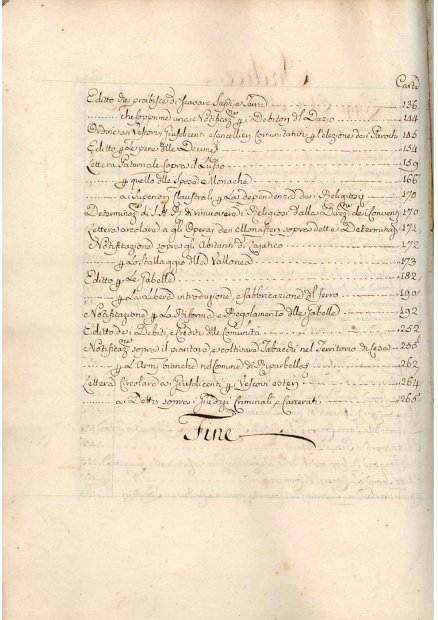 Carte
Editto che proibisce di scavare Sassi, e Terre 136
che supprime una Notificaz.ne p i Debitori di Dazio 144
Ordine ai Vescovi, Giusdicenti, e Cancellieri Comunitativi p l'elezione dei Parochi 145
Editto p Le pene delle Decime 154
Lettera Paternale sopra il Lusso 159
p quello delle Spose e Monache 166
a i Superiori Claustrali p La dependenza dei Religiosi 170
Determinaz. di S. A. R. di rimuovere i Religiosi dalla Direz.ne dei Conventi 170
Lettera circolare a gli Operai dei Monasteri sopra dette Determinaz. 171
Notificazione sopra gli Abitanti di 172
p Lo stallaggio della Vallonea 173
Editto p Le Gabelle 182
p La Libera introduzione, e fabbricazione del ferro 190
Notificazione p La Riforma e Regolamento delle Gabelle 192
Editto dei Debiti, e Crediti delle Comunità 252
Notificaz.ne sopra il piantare, e coltivare Tabacchi nel Territorio di Cesa 255
p L'Armi bianche nel Comune di Riparbella 262
Lettera Circolare ai Giusdicenti p Vescovi esteri 264
ai Detti sopra i Giudizi Criminali, e Carcerati 265
Fine